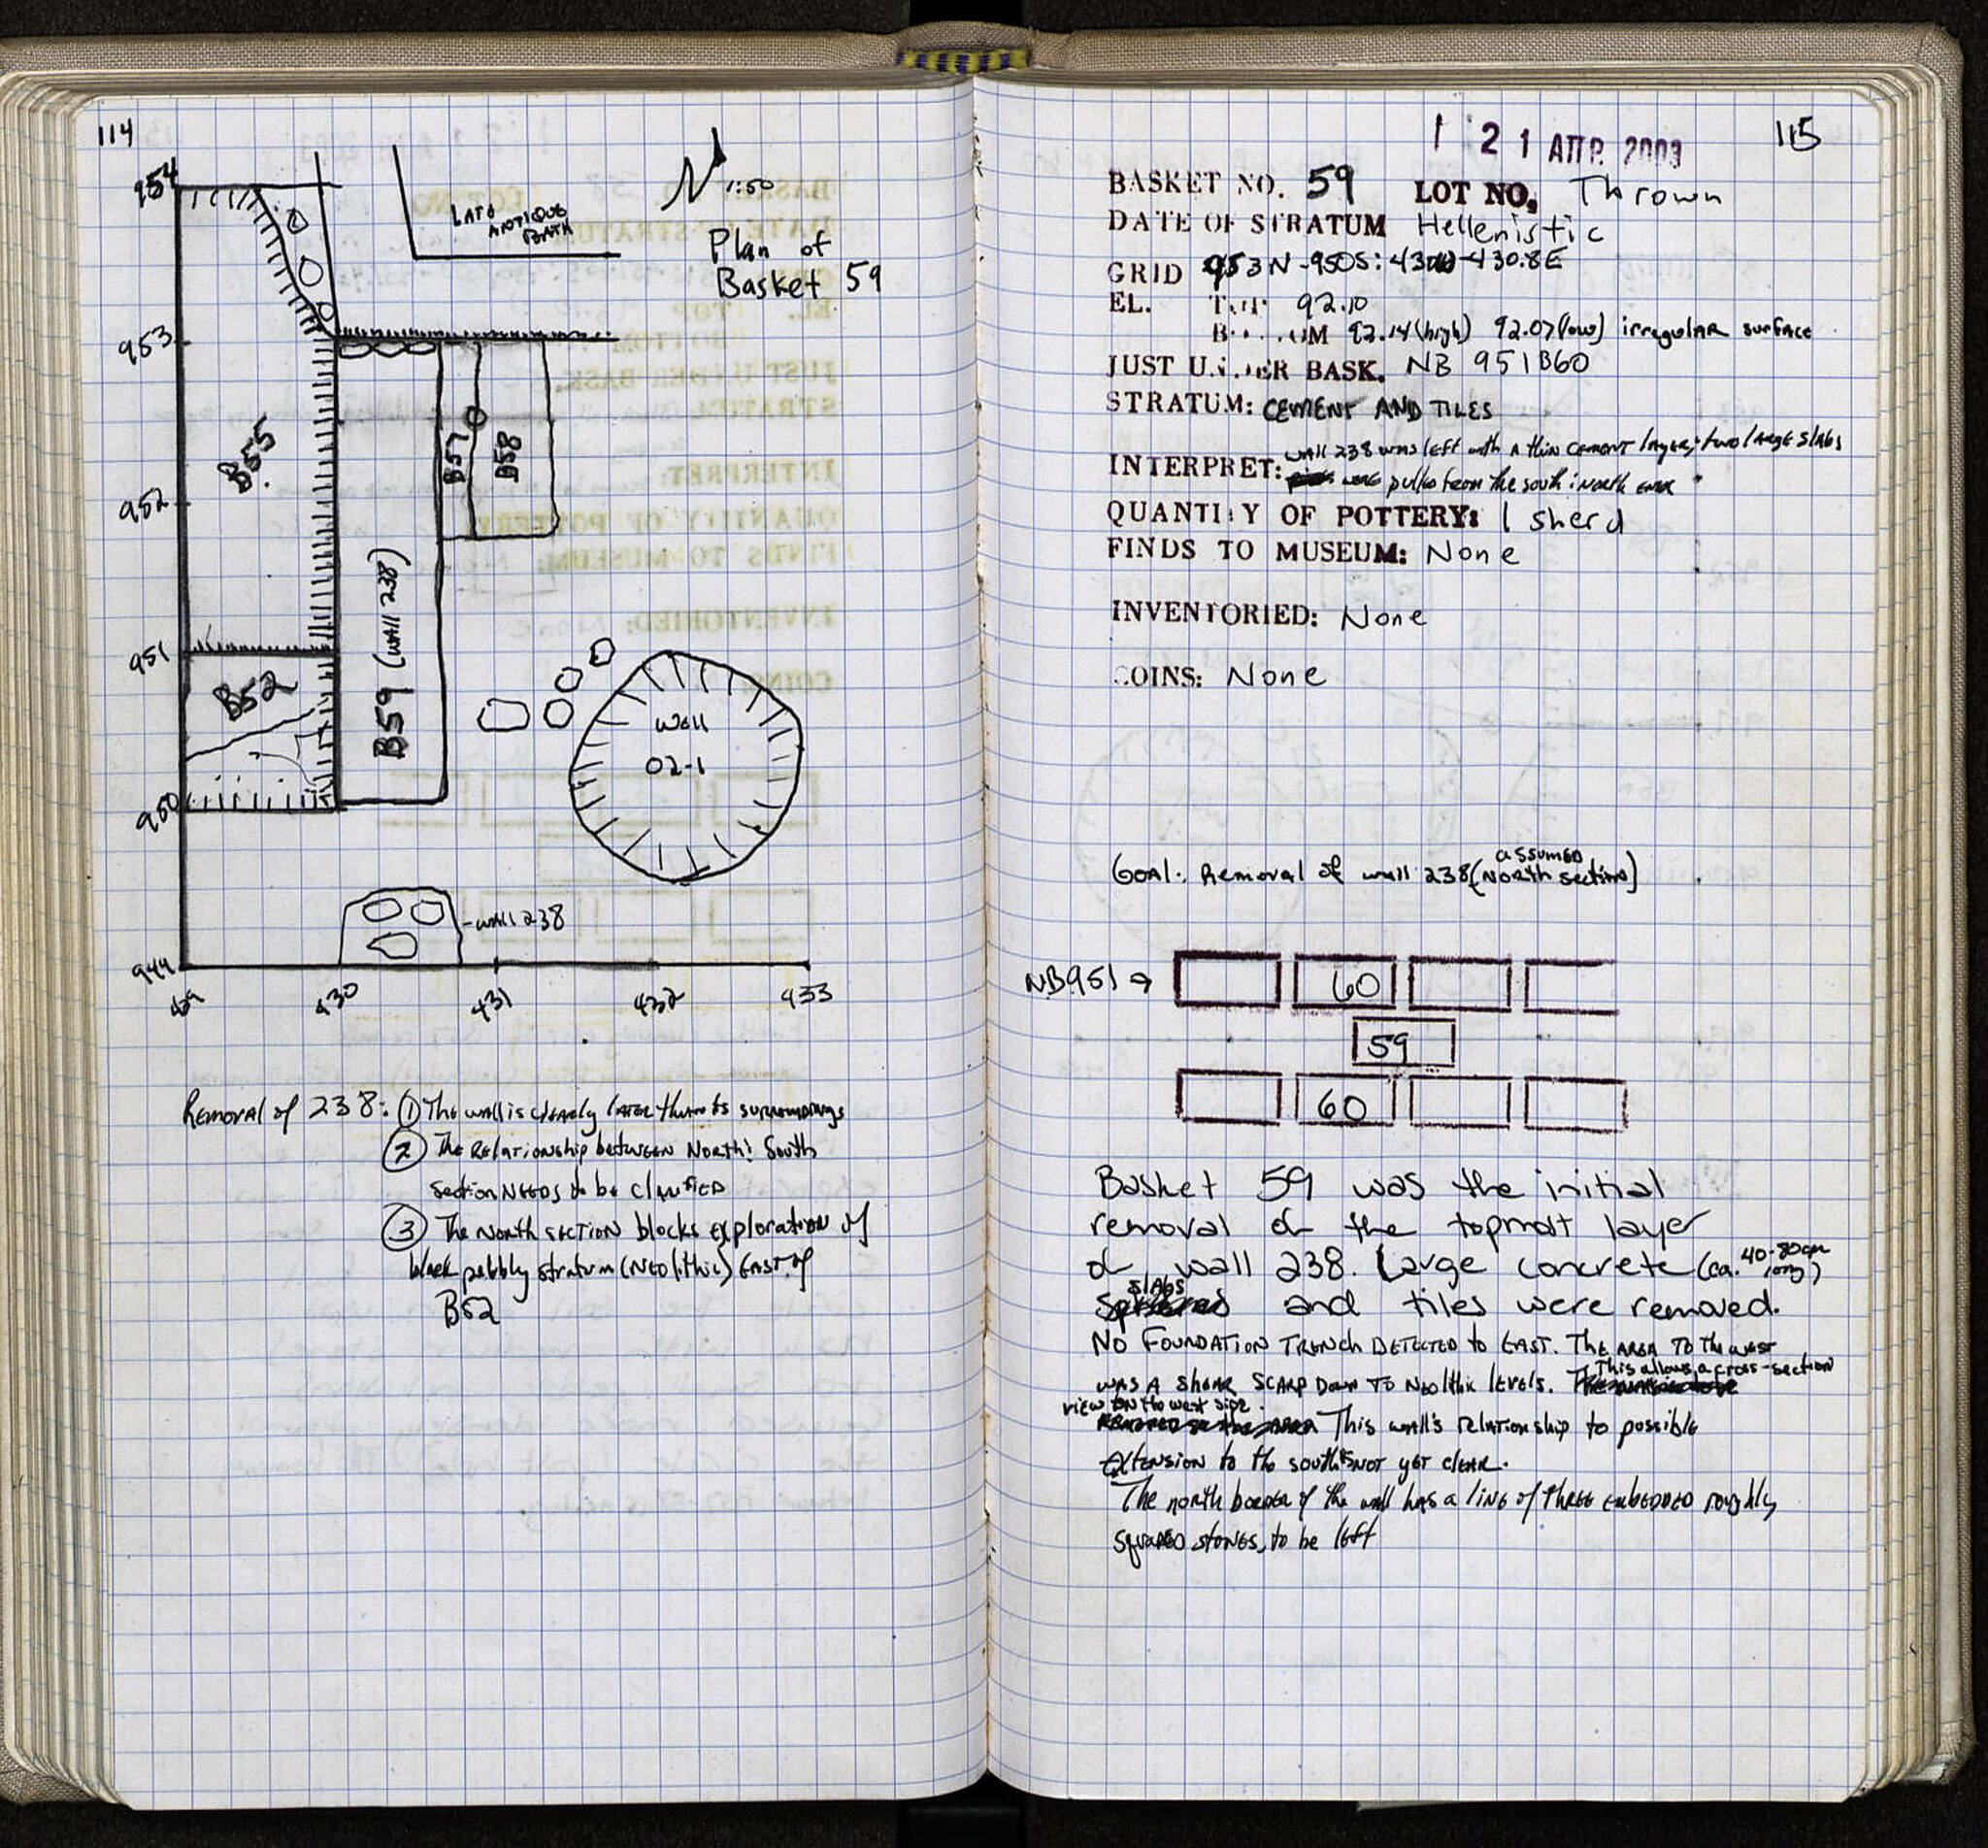 114
954
953
952
951
950
949
429
430
431
432
433
N
1:50
Plan of
Basket 59
LATE
ANTIQUE
BATH
B55
B57
B58
B52
B59 (WALL 238)
Well
02-1
-WALL 238
Removal of 238: ① The wall is clearly later than its surroundings
② The Relationship between North & South
section NEEDS to be clarified
③ The North section blocks exploration of
black pebbly stratum (Neolithic) East of
B52
115
21 ΑΠΡ. 2003
BASKET NO. 59 LOT NO. Thrown
DATE OF STRATUM Hellenistic
GRID 953N-950S: 430W-430.8E
EL. TOP 92.10
BOTTOM 92.14(high) 92.07(low) irregular surface
JUST UNDER BASK. NB 951 B60
STRATUM: CEMENT AND TILES
INTERPRET: Wall 238 was left with a thin cement layer, two large slabs
pulled from the south & north end
QUANTITY OF POTTERY: 1 sherd
FINDS TO MUSEUM: None
INVENTORIED: None
COINS: None
Goal: Removal of wall 238 (assumed North section)
NB951 →
60
59
60
Basket 59 was the initial
removal of the topmost layer
of wall 238. Large concrete (ca. 40-80cm long)
slabs and tiles were removed.
No Foundation Trench Detected to East. The area to the west
was a shear scarp down to Neolithic levels. This allows a cross-section
view on the west side.
This wall's relationship to possible
extension to the south is not yet clear.
The north border of the wall has a line of three embedded roughly
squared stones, to be left